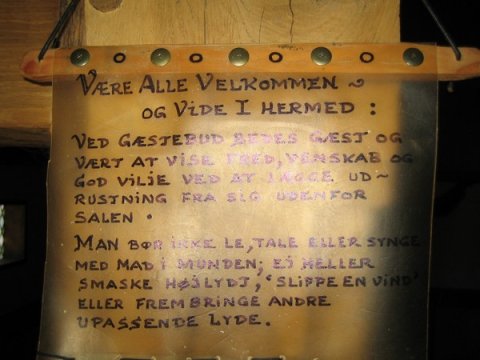 VÆRE ALLE VELKOMMEN ~
OG VIDE I HERMED :
VED GÆSTEBUD BEDES GÆST OG
VÆRT AT VISE FRED, VENSKAB OG
GOD VILJE VED AT LÆGGE UD~
RUSTNING FRA SIG UDENFOR
SALEN •
MAN BØR IKKE LE, TALE ELLER SYNGE
MED MAD I MUNDEN; EJ HELLER
SMASKE HØJLYDT, 'SLIPPE EN VIND'
ELLER FREMBRINGE ANDRE
UPASSENDE LYDE.